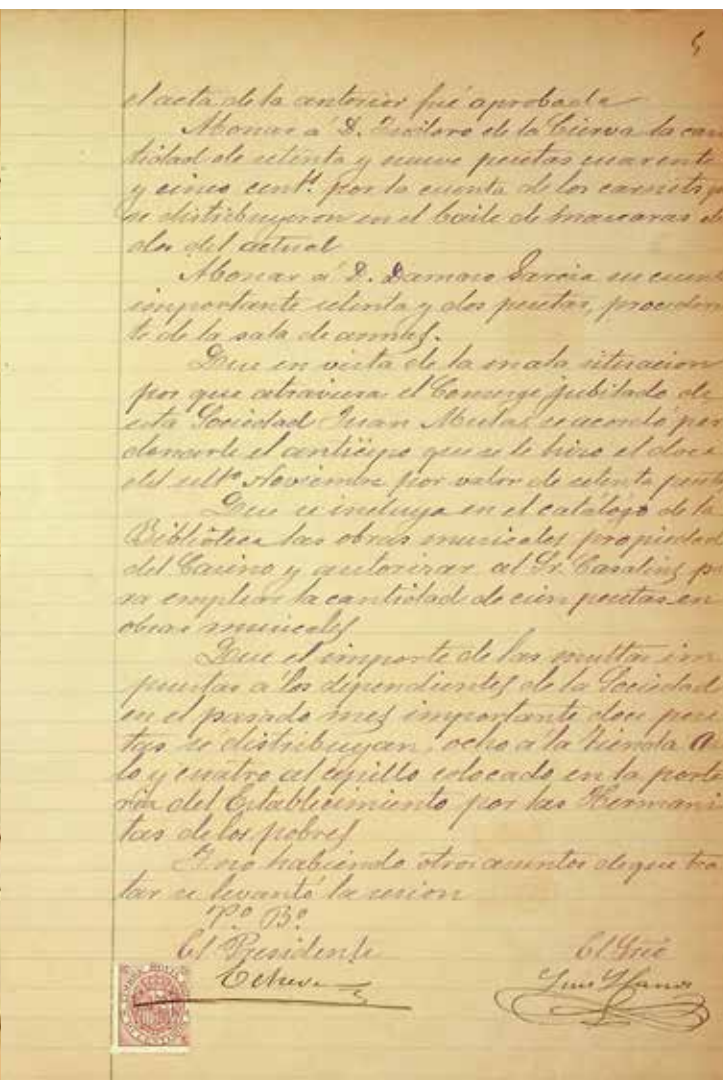 5
el acta de la anterior fué aprobada
Abonar a D. Isidoro de la Cierva la can
tidad de setenta y nueve pesetas cuarenta
y cinco centˢ por la cuenta de los carnets q
se distribuyeron en el baile de mascaras
dos del actual
Abonar a D. Damaso Garcia su cuent
importante setenta y dos pesetas, proceden
te de la sala de armas.
Que en vista de la mala situacion
por que atraviesa el Conserge jubilado de
esta Sociedad Juan Mulas, se acordó per
donarle el anticipo que se le hizo el doce
del ultº Noviembre por valor de setenta peset
Que se incluya en el catalogo de la
Biblioteca las obras musicales propiedad
del Casino y autorizar al Sr. Casalins pa
ra emplear la cantidad de cien pesetas en
obras musicales
Que el importe de las multas im
puestas a los dependientes de la Sociedad
en el pasado mes importante doce pese
tas se distribuyan, ocho a la Tienda A
lo y cuatro al cepillo colocado en la porte
ria del Establecimiento por las Hermani
tas de los pobres
Y no habiendo otros asuntos de que tra
tar se levantó la sesion
Vº Bº
El Presidente El Srio
Luis Llanos